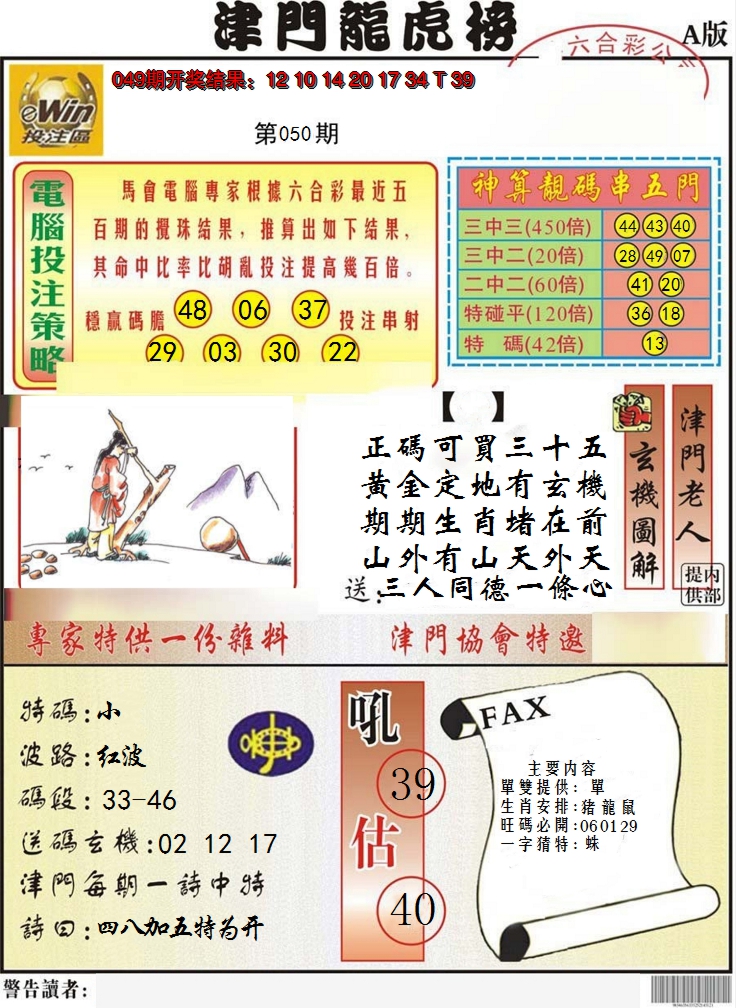 津門龍虎榜
A版
六合彩公
049期开奖结果：12 10 14 20 17 34 T 39
eWin
投注區
第050期
電腦投注策略
馬會電腦專家根據六合彩最近五
百期的攪珠结果，推算出如下结果，
其命中比率比胡亂投注提高幾百倍。
穩贏碼膽 48 06 37 投注串射
29 03 30 22
神算靚碼串五門
三中三(450倍) 44 43 40
三中二(20倍) 28 49 07
二中二(60倍) 41 20
特碰平(120倍) 36 18
特 碼(42倍) 13
【 】
正碼可買三十五
黃金定地有玄機
期期生肖堵在前
山外有山天外天
送：三人同德一條心
玄機圖解
津門老人
内部提供
專家特供一份雜料
津門協會特邀
特碼:小
波路:红波
碼段:33-46
送碼玄機:02 12 17
津門每期一詩中特
詩曰:四八加五特为开
吼 39
估 40
FAX
主要内容
單雙提供：單
生肖安排:豬龍鼠
旺碼必開:060129
一字猜特：蛛
警告讀者：